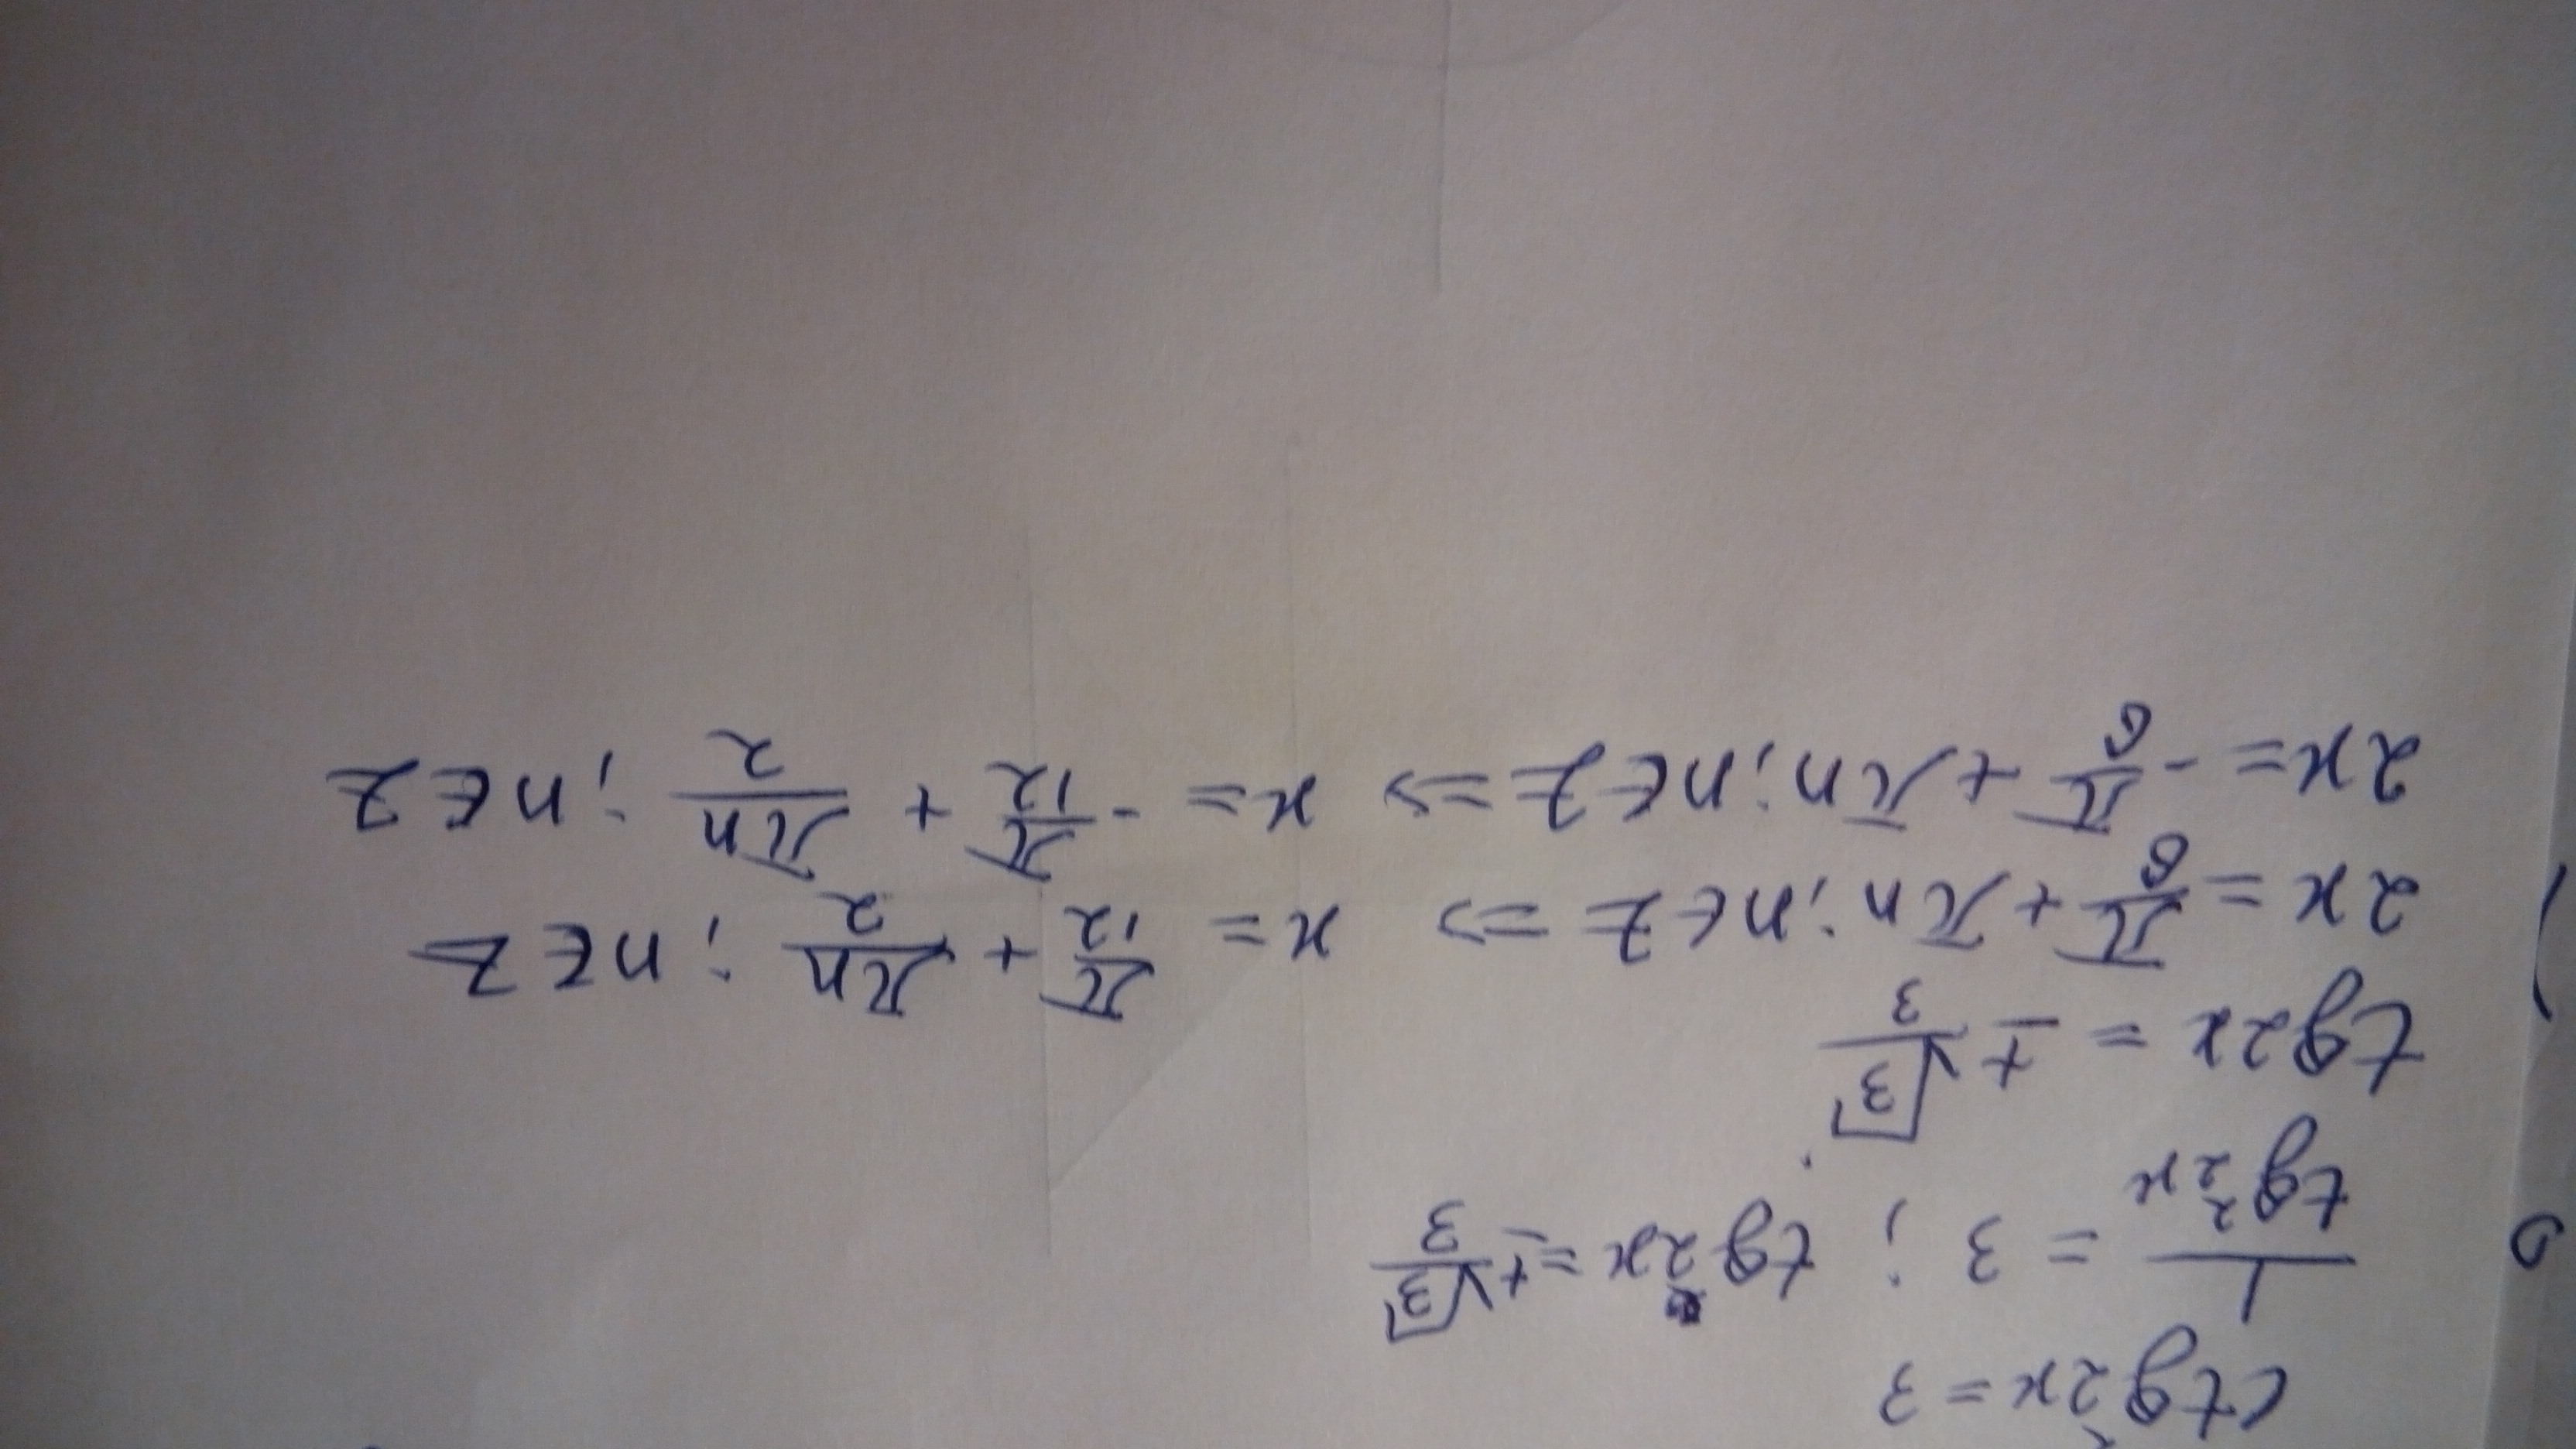 ctg²2x = 3
1/tg²2x = 3 ; tg2x = ±√3/3
tg2x = ±√3/3
2x = π/6 + πn; n∈Z => x = π/12 + πn/2 ; n∈Z
2x = -π/6 + πn; n∈Z => x = -π/12 + πn/2 ; n∈Z